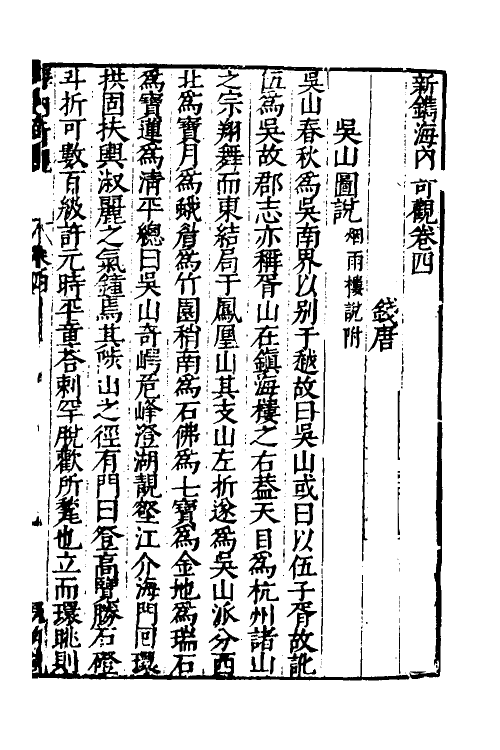 新鐫海內奇觀卷四
錢唐
吳山圖說 烟雨樓說附
吳山春秋為吳南界以别于越故曰吳山或曰以伍子胥故訛
伍為吳故郡志亦稱胥山在鎮海樓之右葢天目為杭州諸山
之宗翔舞而東結局于鳳凰山其支山左折遂為吳山派分西
北為寶月為蛾眉為竹園稍南為石佛為七寶為金地為瑞石
為寶蓮為清平總曰吳山奇崿危峰澄湖靚壑江介海門回環
拱固扶輿淑麗之氣鍾焉其陟山之徑有門曰登高覽勝石磴
斗折可數百級許元時平章荅剌罕脫歡所甃也立而環眺則